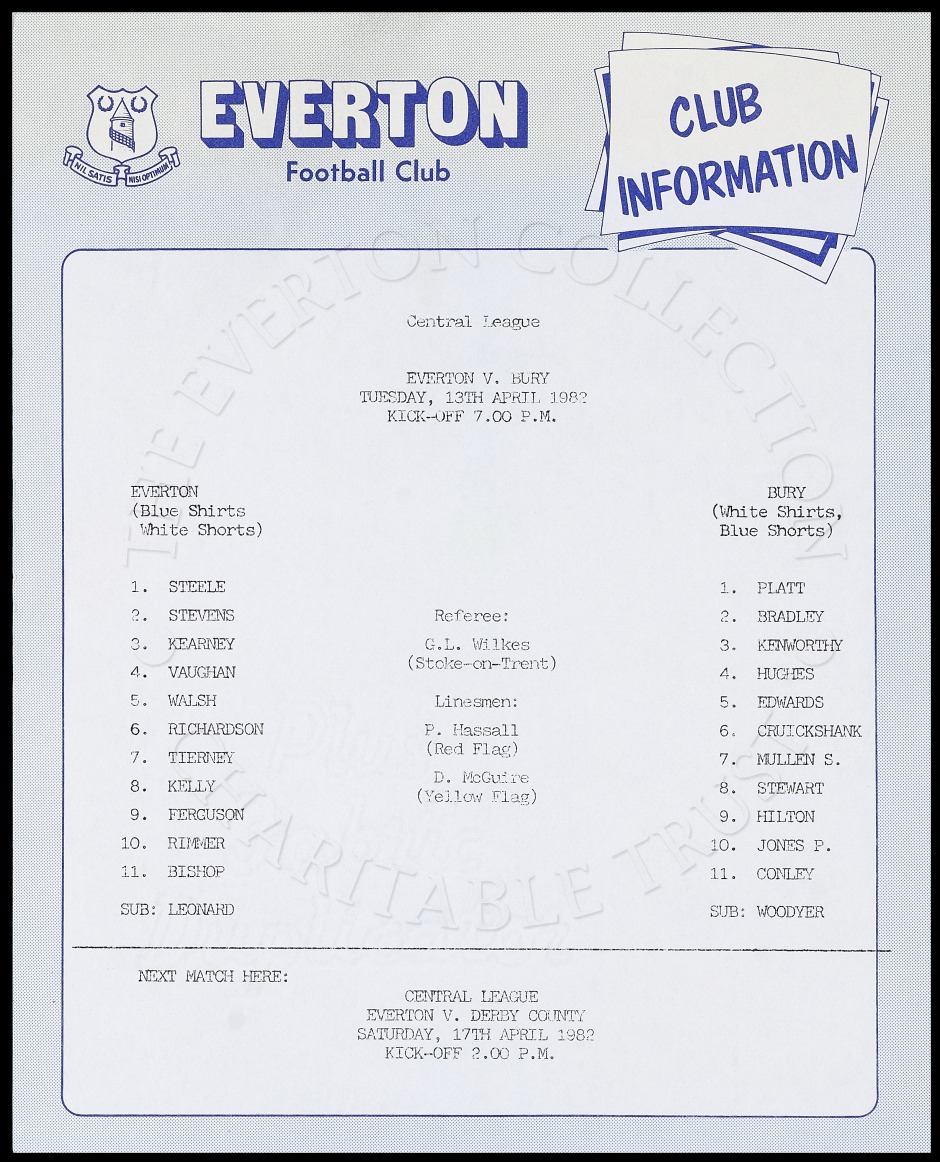 EVERTON
Football Club
NIL SATIS NISI OPTIMUM
CLUB
INFORMATION
THE EVERTON COLLECTION
CHARITABLE TRUST
Central League
EVERTON V. BURY
TUESDAY, 13TH APRIL 1982
KICK-OFF 7.00 P.M.
EVERTON
(Blue Shirts
White Shorts)
1. STEELE
2. STEVENS
3. KEARNEY
4. VAUGHAN
5. WALSH
6. RICHARDSON
7. TIERNEY
8. KELLY
9. FERGUSON
10. RIMMER
11. BISHOP
SUB: LEONARD
Referee:
G.L. Wilkes
(Stoke-on-Trent)
Linesmen:
P. Hassall
(Red Flag)
D. McGuire
(Yellow Flag)
BURY
(White Shirts,
Blue Shorts)
1. PLATT
2. BRADLEY
3. KENWORTHY
4. HUGHES
5. EDWARDS
6. CRUICKSHANK
7. MULLEN S.
8. STEWART
9. HILTON
10. JONES P.
11. CONLEY
SUB: WOODYER
NEXT MATCH HERE:
CENTRAL LEAGUE
EVERTON V. DERBY COUNTY
SATURDAY, 17TH APRIL 1982
KICK-OFF 2.00 P.M.